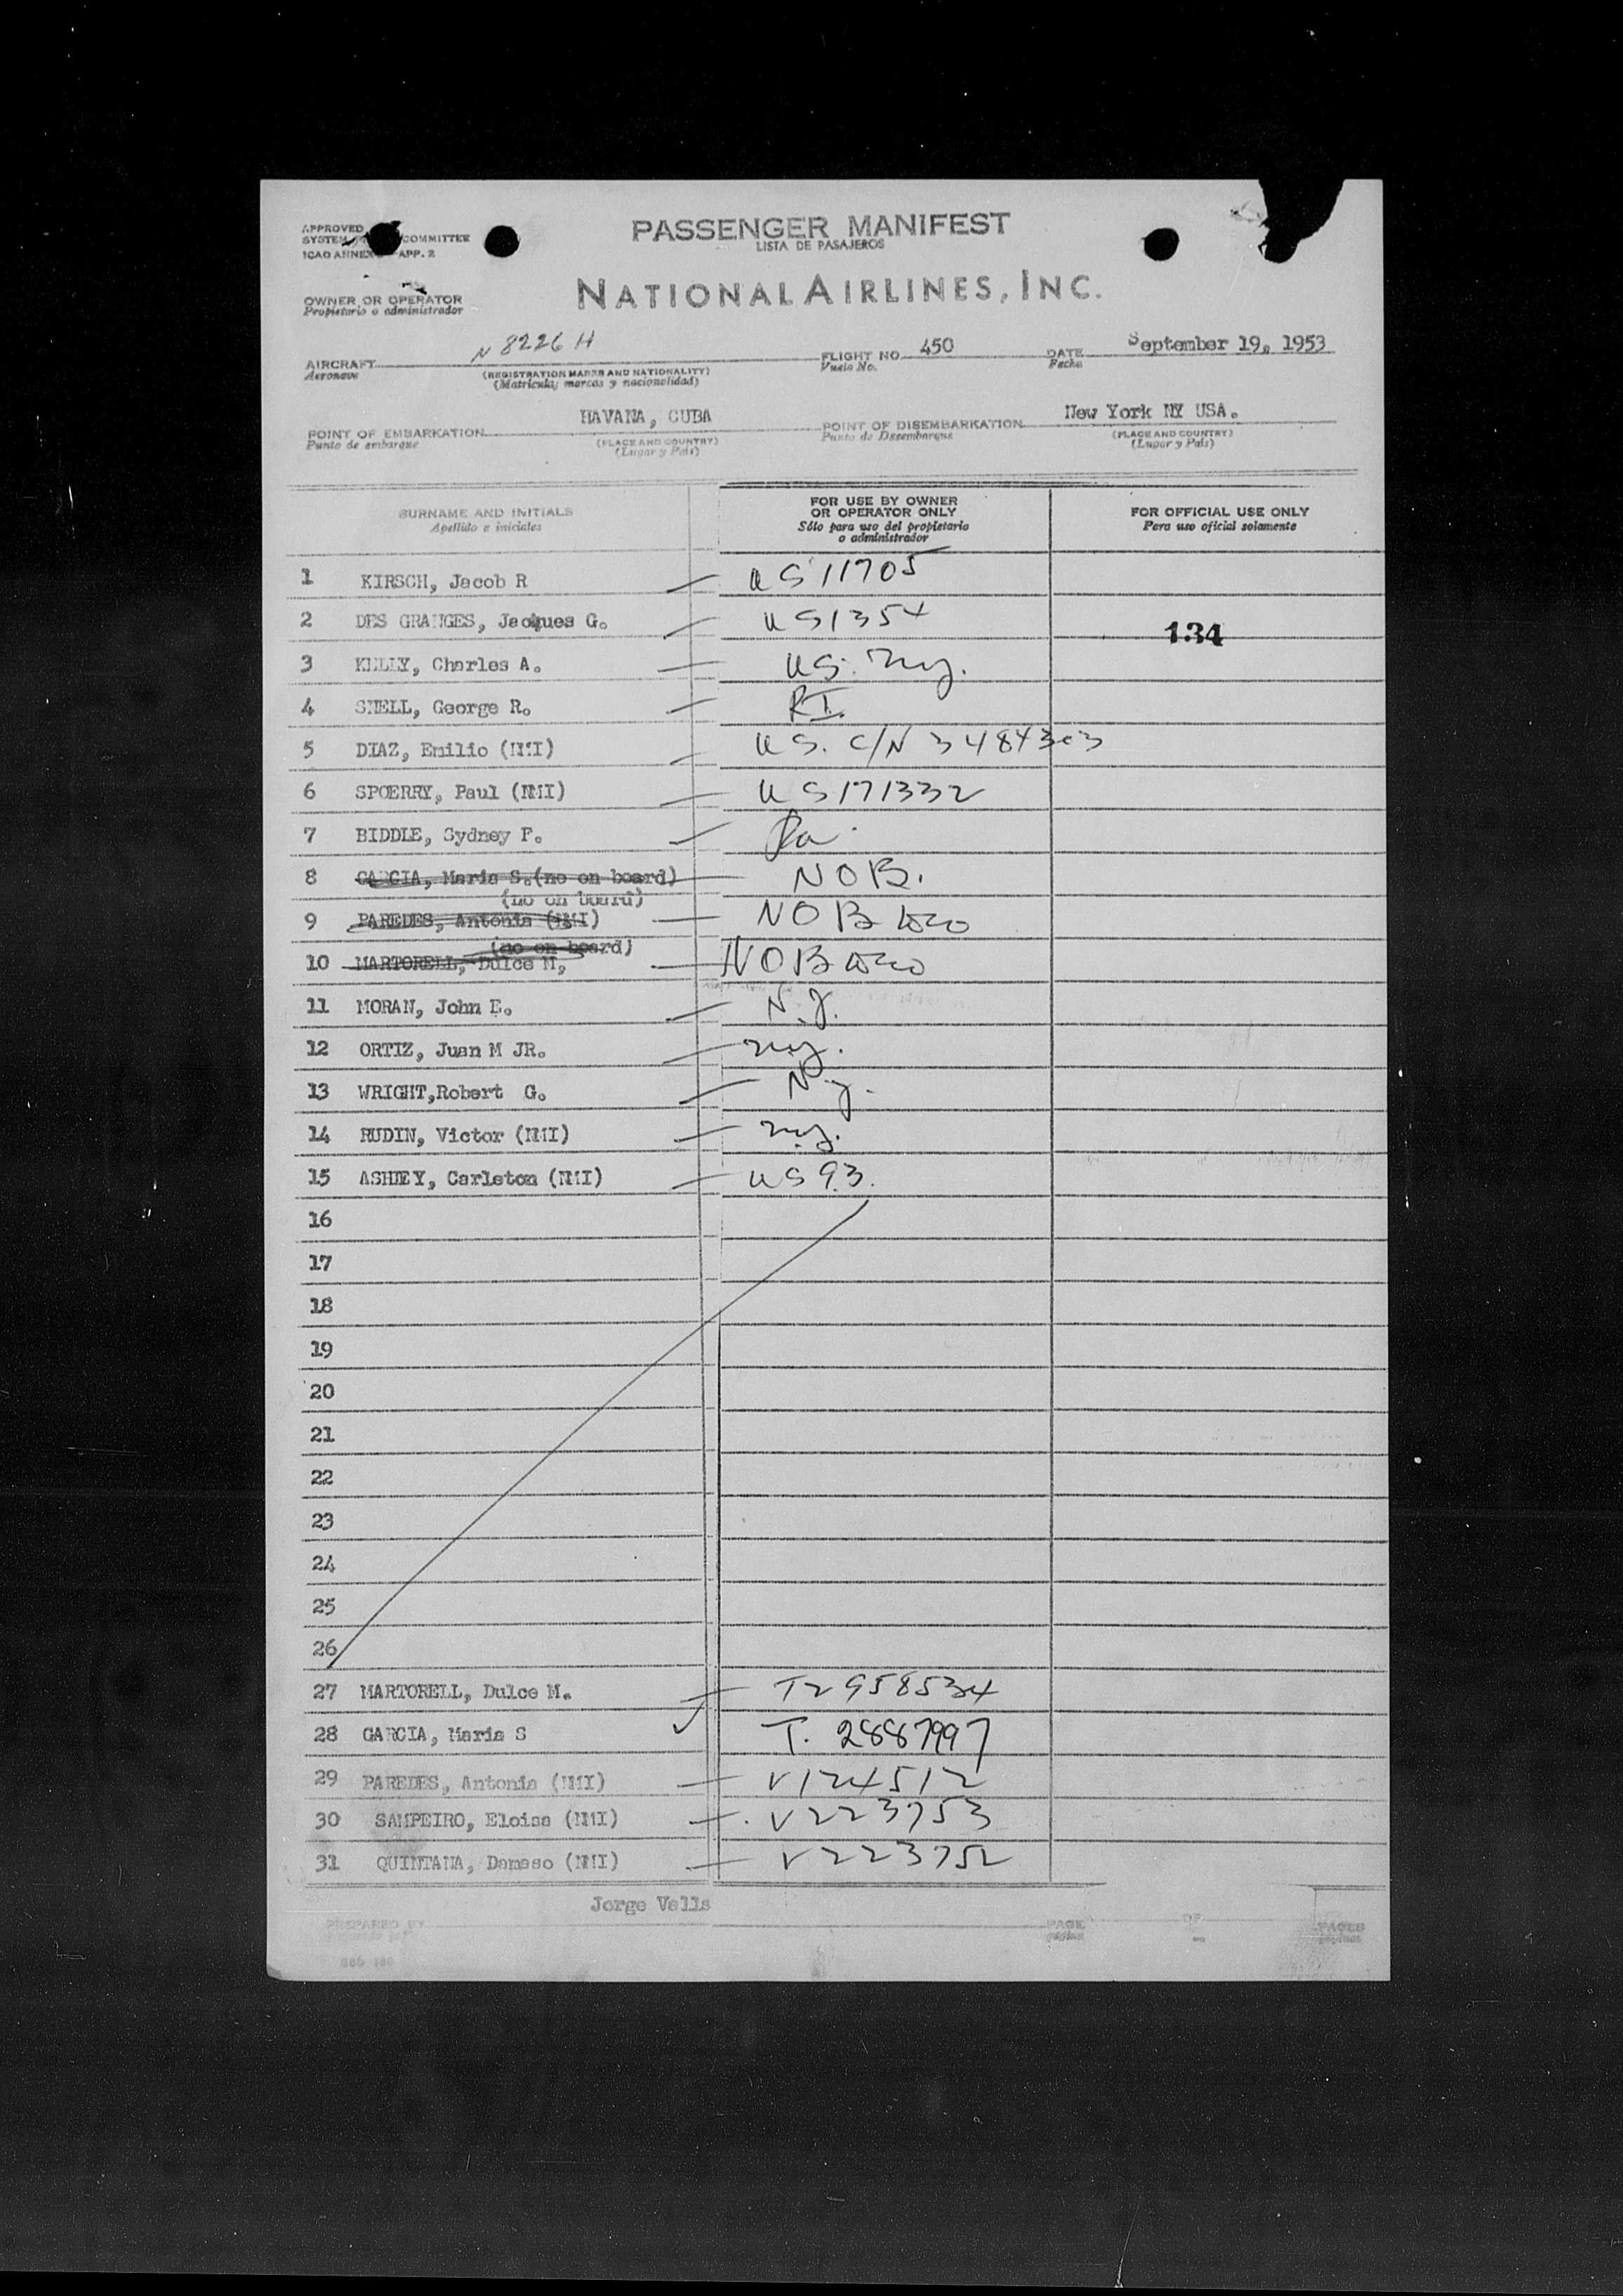 APPROVED
SYSTEM COMMITTEE
ICAO ANNEX APP. 2
PASSENGER MANIFEST
LISTA DE PASAJEROS
NATIONAL AIRLINES, INC.
OWNER OR OPERATOR
Propietario o administrador
AIRCRAFT N 8226 H FLIGHT NO. 450 DATE September 19, 1953
Aeronave (REGISTRATION MARKS AND NATIONALITY) Vuelo No. Fecha
(Matricula; marcas y nacionalidad)
POINT OF EMBARKATION HAVANA, CUBA POINT OF DISEMBARKATION New York NY USA.
Punto de embarque (PLACE AND COUNTRY) Punto de Desembarque (PLACE AND COUNTRY)
(Lugar y País) (Lugar y País)
SURNAME AND INITIALS
Apellido e iniciales
FOR USE BY OWNER
OR OPERATOR ONLY
Sólo para uso del propietario
o administrador
FOR OFFICIAL USE ONLY
Para uso oficial solamente
1 KIRSCH, Jacob R US 11705
2 DES GRANGES, Jacques G. US1354
134
3 KELLY, Charles A. US. ny.
4 SNELL, George R. RI.
5 DIAZ, Emilio (NMI) US. C/N 3484303
6 SPOERRY, Paul (NMI) US171332
7 BIDDLE, Sydney F. Pa.
8 GARCIA, Maria S.(no on board) NOB.
(no on board)
9 PAREDES, Antonia (NMI) NOB
(no on board)
10 MARTORELL, Dulce M, NOB
11 MORAN, John E. N.J.
12 ORTIZ, Juan M JR. ny.
13 WRIGHT,Robert G. Ny.
14 RUDIN, Victor (NMI) n.y.
15 ASHLEY, Carleton (NMI) US 93.
16
17
18
19
20
21
22
23
24
25
26
27 MARTORELL, Dulce M. T2958534
28 GARCIA, Maria S T. 2887997
29 PAREDES, Antonia (NMI) V124512
30 SAMPEIRO, Eloisa (NMI) V223753
31 QUINTANA, Damaso (NMI) V223752
Jorge Valls
PREPARED BY PAGE OF PAGES